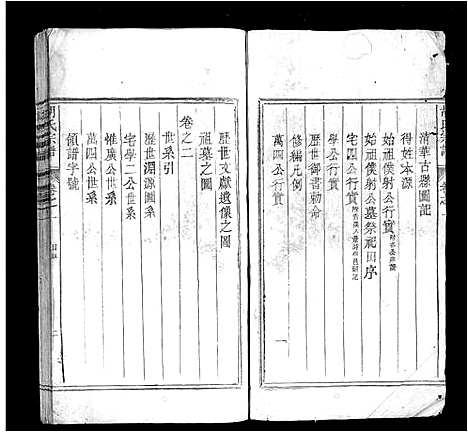 清華古縣圖記
得姓本源
始祖僕射公行實
始祖僕射公墓祭祀田序
宅公行實
學公行實
歷世御書勅命
修編凡例
萬四公行實
一
歷世文獻遺像之圖
祖墓之圖
卷之二
世系引
歷世淵源圖系
宅學二公世系
惟廣公世系
萬四公世系
領譜字號
氏宗譜
卷之一